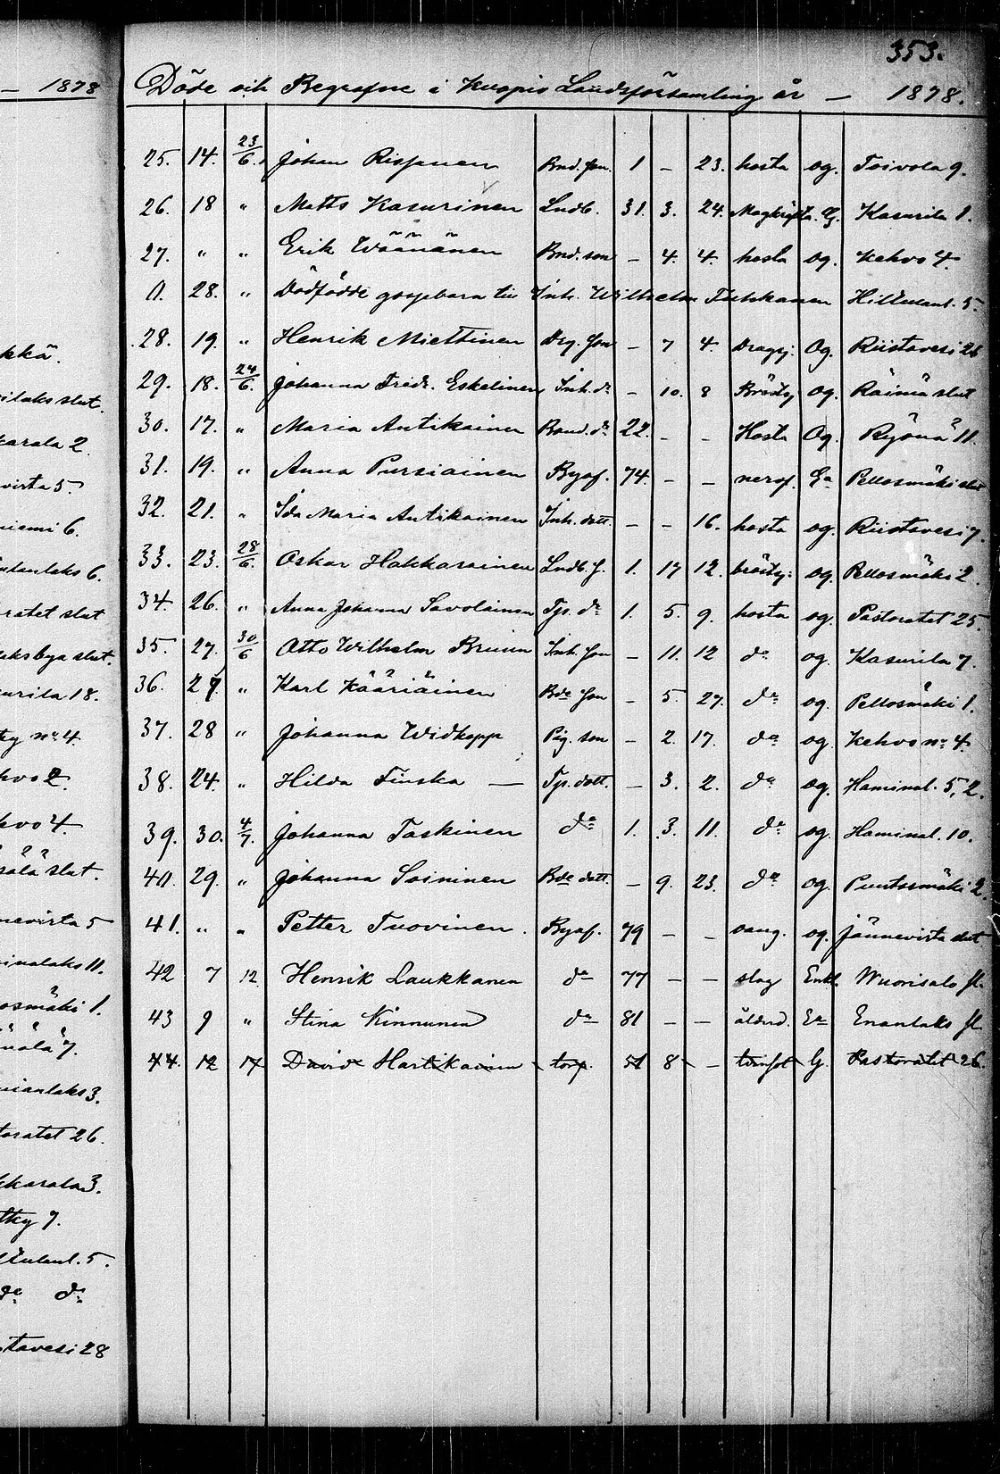 353.
Döde och Begrafne i Kuopio Landsförsamling år — 1878.
25. 14. 23/6. Johan Rissanen Bnd. son 1 – 23. hosta og. Toivola 9.
26. 18 " Matts Kasurinen Lndb. 31. 3. 24. Magkräfta. G. Kasurila 1.
27. " " Erik Wäänänen Bnd. son – 4. 4. hosta og. Kehvo 4.
0. 28. " Dödfödde gossebarn till Inh. Wilhelm Tuhkanen 5.
28. 19. " Henrik Miettinen Drg. son – 7 4. Dragsj. Og. Riistavesi 28
29. 18. 24/6. Johanna Fredr. Eskelinen Inh. dr – 10. 8 Bröstsj og. Räimä slut
30. 17. " Maria Antikainen Bond. dr 22. – – Hosta Og. Ryönä 11.
31. 19. " Anna Pursiainen Byaf. 74. – – nervf. Ga Pellosmäki slut
32. 21. " Ida Maria Antikainen Inh. dott. – – 16. hosta og. Riistavesi 7.
33. 23. 28/6. Oskar Hakkarainen Lndb. s. 1. 17 12. bröstsj. og. Pellosmäki 2.
34. 26. " Anna Johanna Savolainen Tp. dr 1. 5. 9. hosta og. Pastoratet 25.
35. 27. 30/6 Otto Wilhelm Bruun Inh. son – 11. 12 do og. Kasurila 7.
36. 27. " Karl Kääriäinen Bde son – 5. 27. do og. Pellosmäki 1.
37. 28 " Johanna Widkopp Pig. son – 2. 17. do og Kehvo no 4.
38. 24. " Hilda Finska — Tp. dott. – 3. 2. do og. Haminal. 5, 2.
39. 30. 4/7. Johanna Taskinen do 1. 3. 11. do og Haminal. 10.
40. 29. " Johanna Soininen Bde dott. – 9. 23. do og Puutosmäki 2.
41. " " Petter Tuovinen. Byaf. 79 – – og. Jännevirta slut
42 7 12 Henrik Laukkanen do 77 – – slag Enkl. Wuorisalo fl.
43 9 " Stina Kinnunen do 81 – – ålderd. Ea Enanlaks fl
44. 12 17 David Hartikainen torp. 51 8 – G. Pastoratet 26.
– 1878
kkä.
ilaks slut.
karala 2.
virta 5.
niemi 6.
ratet slut
laksbya slut.
urila 18.
ky no 4.
hvo 2.
hvo 4.
slut.
nevirta 5
inalaks 11.
osmäki 1.
nianlaks 3.
toratet 26.
kkarala 3.
tky 7.
do do
tavesi 28